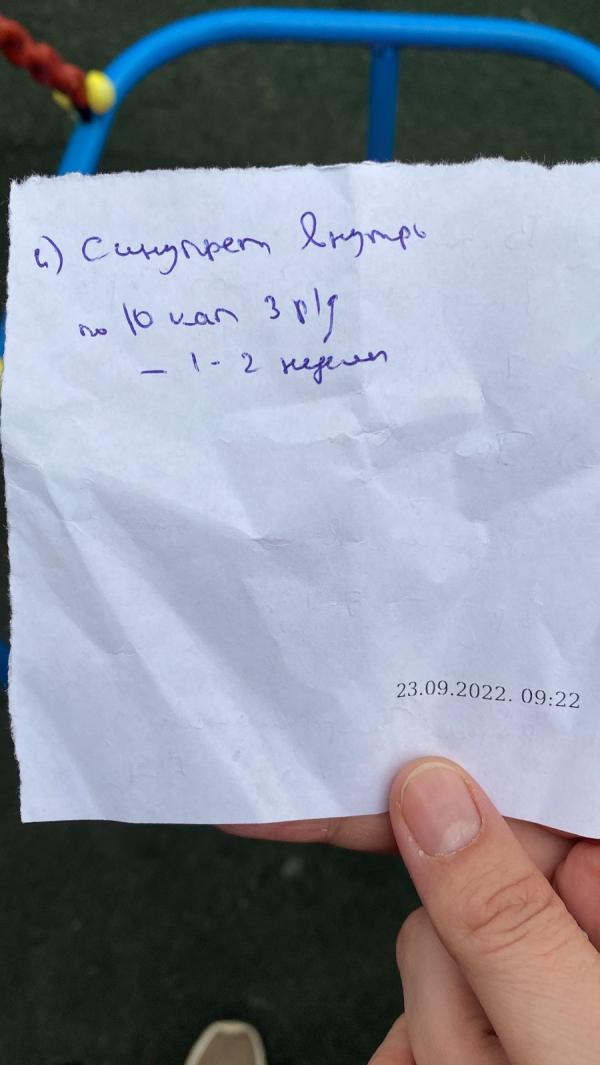 4) Синупрет внутрь
по 10 кап 3 р/д
– 1-2 недели
23.09.2022. 09:22